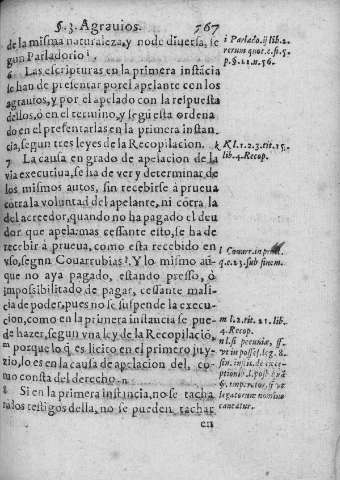 §. 3. Agrauios. 767
de la misma naturaleza, y no de diuersa, se
gun Parladorio i.
6 Las escripturas en la primera instãcia
se han de presentar por el apelante con los
agrauios, y por el apelado con la respuesta
dellos, ò en el termino, y segũ està ordena
do en el presentarlas en la primera instan-
cia, segun tres leyes de la Recopilacion. k
7 La causa en grado de apelacion de la
via executiua, se ha de ver y determinar de
los mismos autos, sin recebirse à prueua
cõtra la voluntad del apelante, ni cõtra la
del acreedor, quando no ha pagado el deu
dor que apela: mas cessante esto, se ha de
recebir à prueua, como esta recebido en
vso, segnn Couarrubias l. Y lo mismo aũ-
que no aya pagado, estando presso, ò
impossibilitado de pagar, cessante mali-
cia de poder, pues no se suspende la execu-
cion, como en la primera instancia se pue-
de hazer, segun vna ley de la Recopilaciõ,
m porque lo q̃ es licito en el primero juy-
zio, lo es en la causa de apelacion del, co
mo consta del derecho. n
8 Si en la primera instancia, no se tacha
rõ los testigos della, no se pueden tachar
en
i Parlado. ij lib. 2.
rerum quot. c. fi. 5.
p. §. 11. n. 56.
K l. 1. 2. 3. tit. 15.
lib. 4. Recop.
l Couarr. in pract.
q. c. 23. sub finem.
m l. 2. tit. 21. lib.
4. Recop.
n l. si pecuniæ, ff.
vt in posses. leg. §.
fin. instit. de exce-
ptionib. l. post
imperator, ff. vt
legatorum nomine
caueatur.